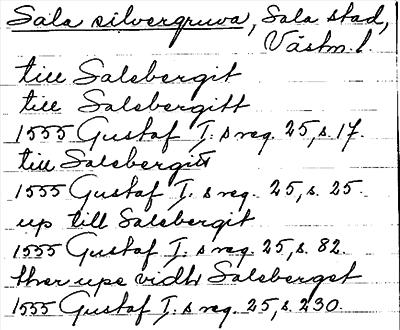 Sala silvergruva, Sala stad,
Västm. l.
till Salsbergit
till Salsbergitt
1555 Gustaf I:s reg. 25, s. 17.
till Salsbergitt
1555 Gustaf I:s reg. 25, s. 25.
up till Salsbergit
1555 Gustaf I:s reg. 25, s. 82.
ther upe vidh Salsberget
1555 Gustaf I:s reg. 25, s. 230.